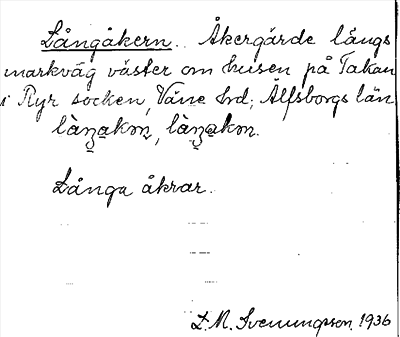 Långåkern. Åkergärde längs
markväg väster om husen på Takan
i Ryr socken, Väne hrd; Älfsborgs län.
làŋakɷn, làŋakɷn.
Långa åkrar.
L. M. Svenungsson. 1936